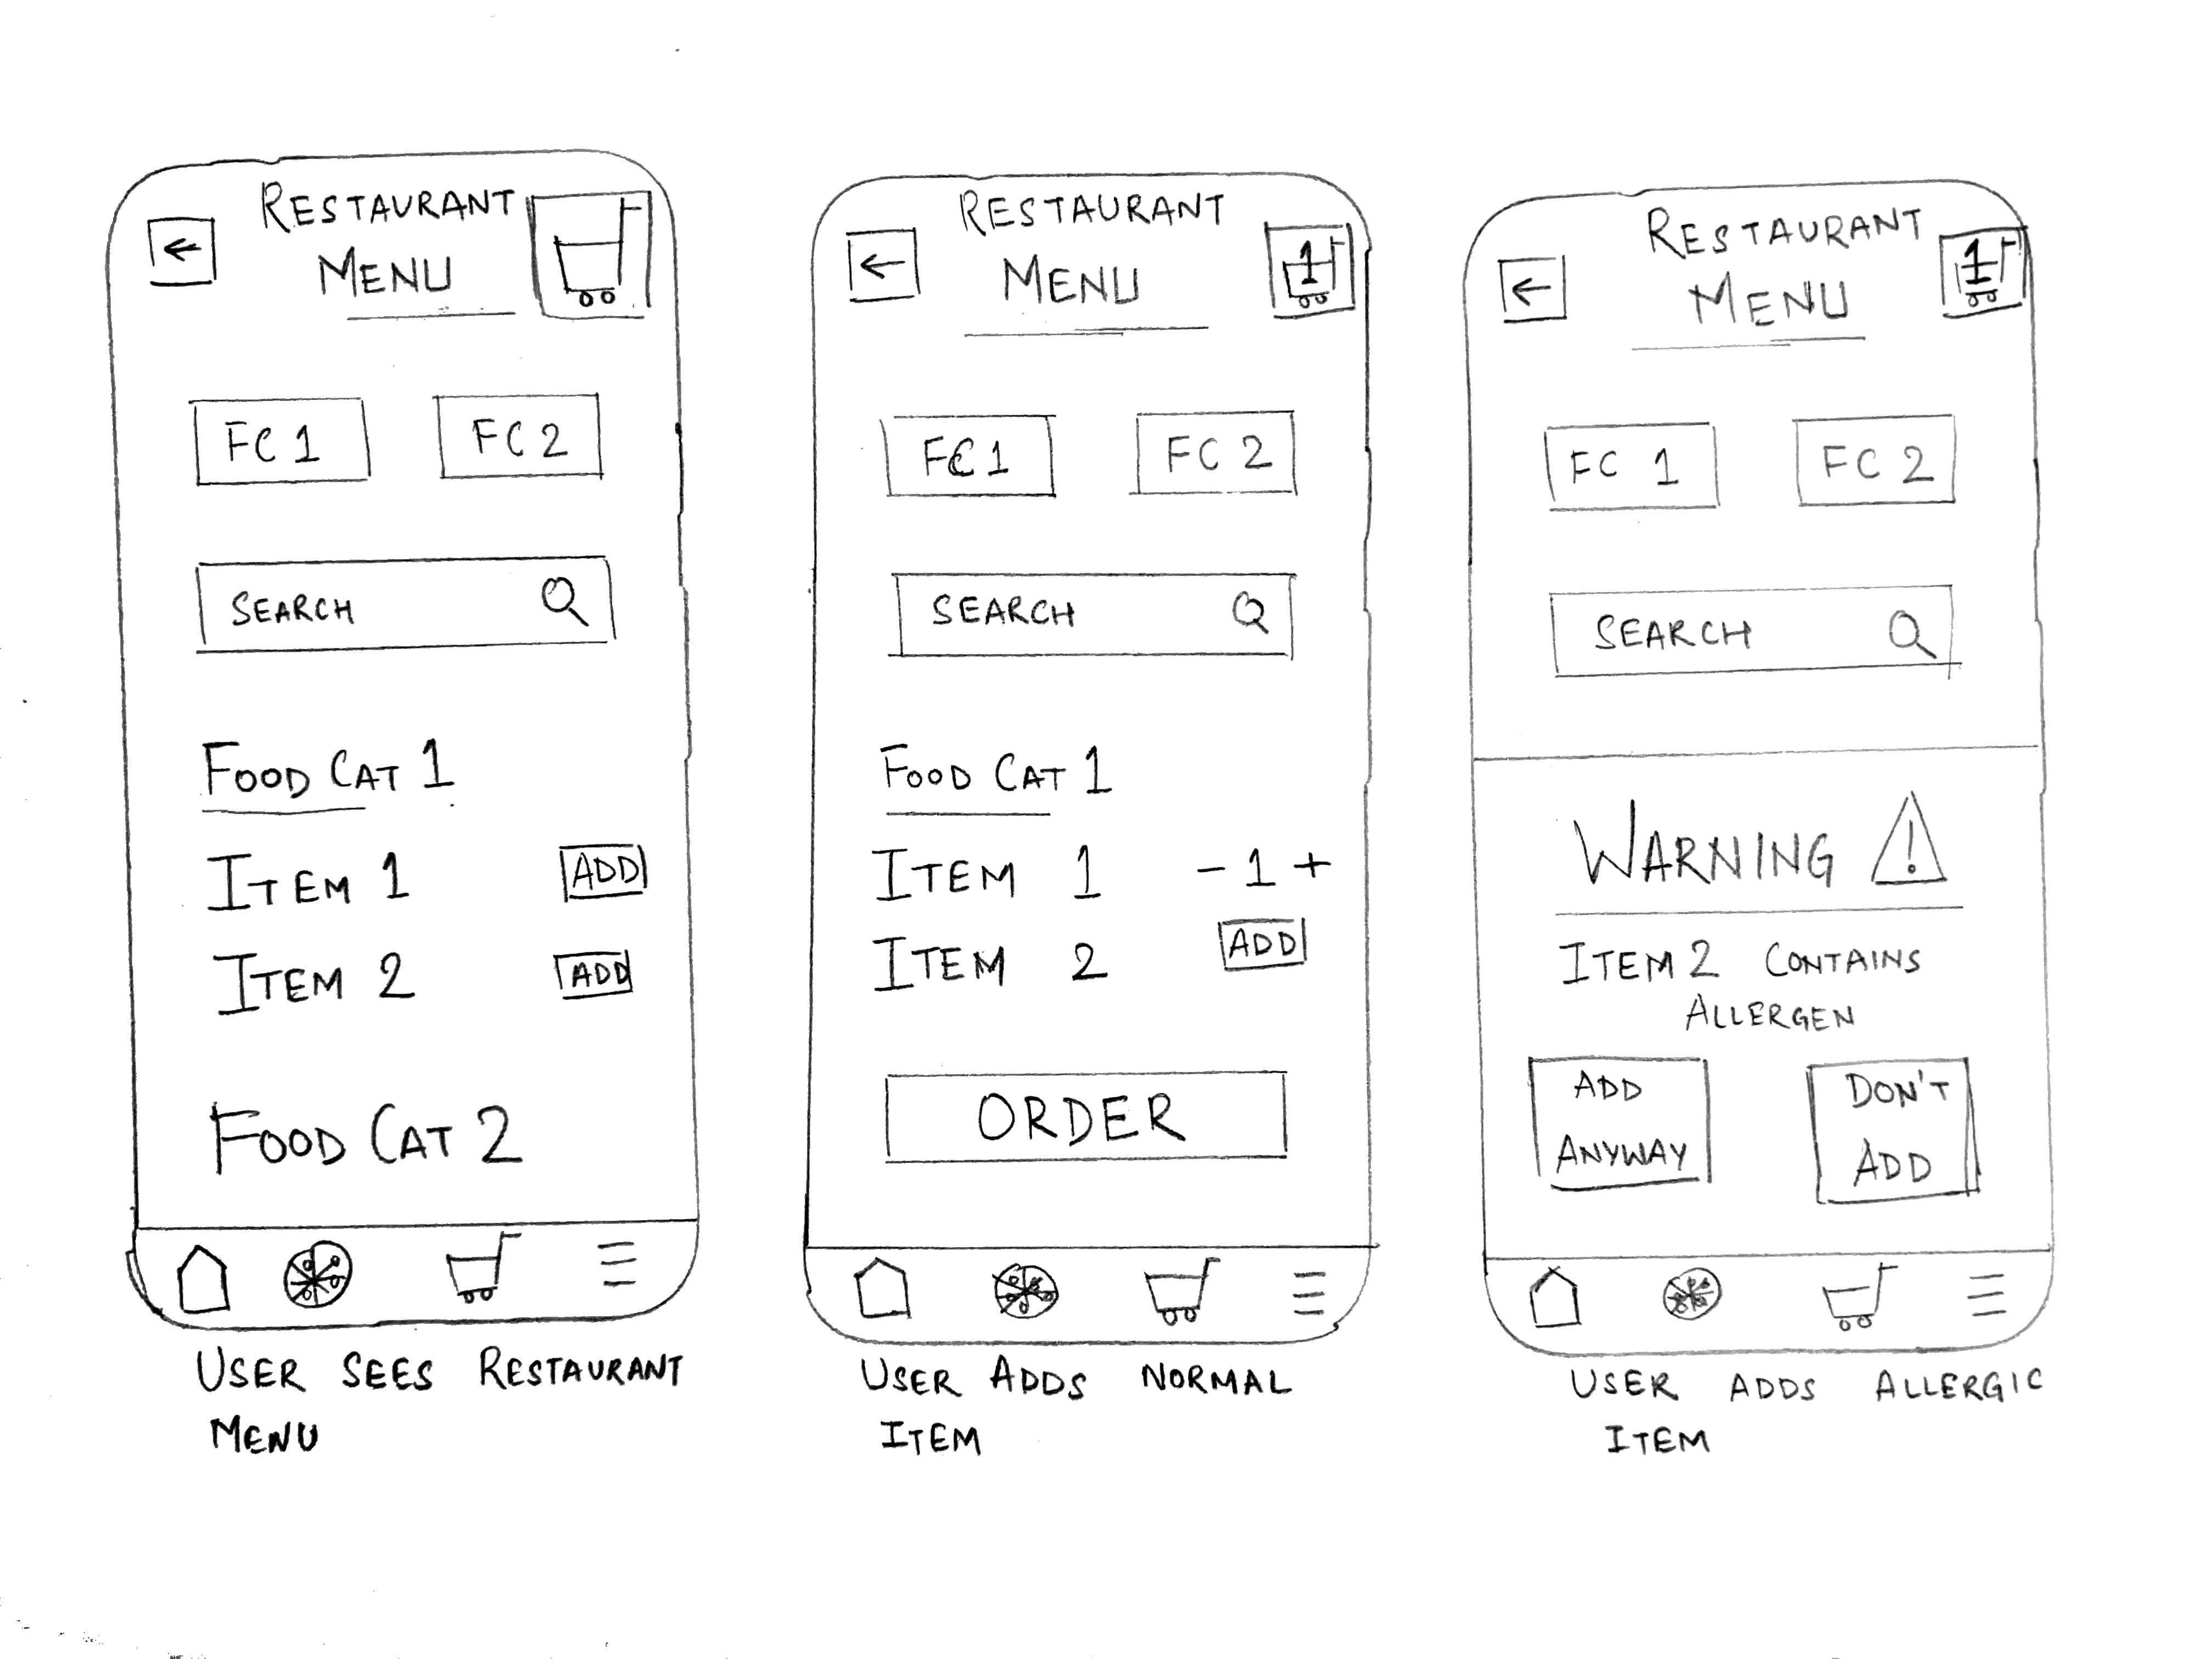 RESTAURANT
MENU
FC 1
FC 2
SEARCH
FOOD CAT 1
ITEM 1
ADD
ITEM 2
ADD
FOOD CAT 2
USER SEES RESTAURANT
MENU
RESTAURANT
MENU
1
FC 1
FC 2
SEARCH
FOOD CAT 1
ITEM 1 - 1 +
ITEM 2
ADD
ORDER
USER ADDS NORMAL
ITEM
RESTAURANT
MENU
1
FC 1
FC 2
SEARCH
WARNING !
ITEM 2 CONTAINS
ALLERGEN
ADD
ANYWAY
DON'T
ADD
USER ADDS ALLERGIC
ITEM